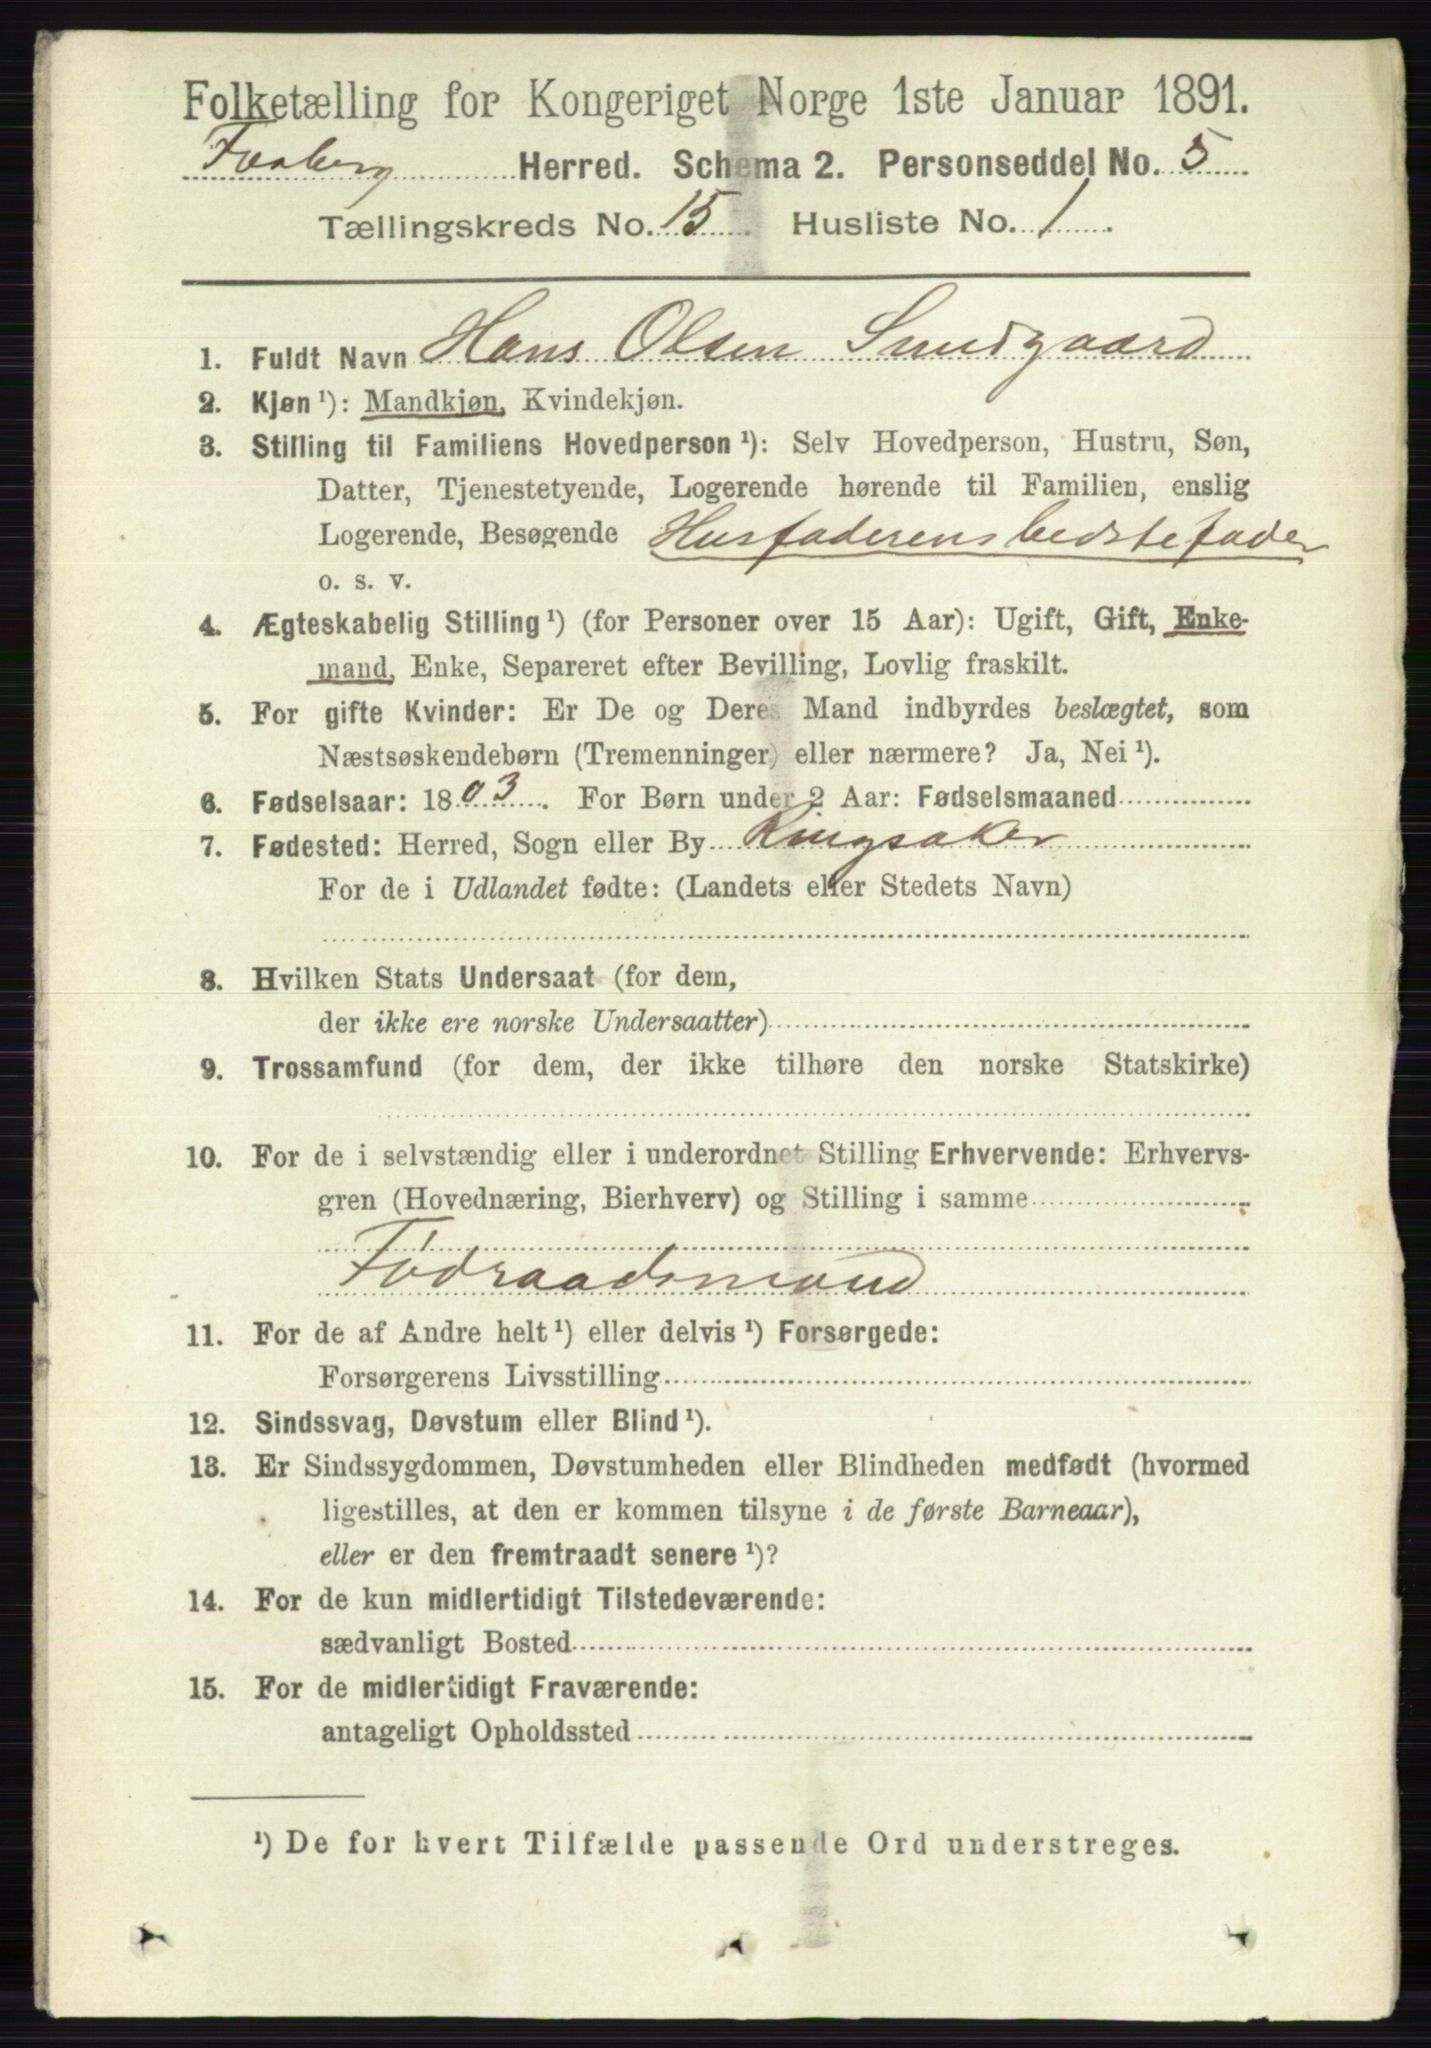 Folketælling for Kongeriget Norge 1ste Januar 1891.
Faaberg Herred. Schema 2. Personseddel No. 5
Tællingskreds No. 15. Husliste No. 1.
1. Fuldt Navn Hans Olsen Smedgaard
2. Kjøn ¹): Mandkjøn, Kvindekjøn.
3. Stilling til Familiens Hovedperson ¹): Selv Hovedperson, Hustru, Søn,
Datter, Tjenestetyende, Logerende hørende til Familien, enslig
Logerende, Besøgende Husfaderens bedstefader
o. s. v.
4. Ægteskabelig Stilling ¹) (for Personer over 15 Aar): Ugift, Gift, Enke-
mand, Enke, Separeret efter Bevilling, Lovlig fraskilt.
5. For gifte Kvinder: Er De og Deres Mand indbyrdes beslægtet, som
Næstsøskendebørn (Tremenninger) eller nærmere? Ja, Nei ¹).
6. Fødselsaar: 1803. For Børn under 2 Aar: Fødselsmaaned
7. Fødested: Herred, Sogn eller By Ringsaker
For de i Udlandet fødte: (Landets eller Stedets Navn)
8. Hvilken Stats Undersaat (for dem,
der ikke ere norske Undersaatter)
9. Trossamfund (for dem, der ikke tilhøre den norske Statskirke)
10. For de i selvstændig eller i underordnet Stilling Erhvervende: Erhvervs-
gren (Hovednæring, Bierhverv) og Stilling i samme
Föderaadsmand
11. For de af Andre helt ¹) eller delvis ¹) Forsørgede:
Forsørgerens Livsstilling
12. Sindssvag, Døvstum eller Blind ¹).
13. Er Sindssygdommen, Døvstumheden eller Blindheden medfødt (hvormed
ligestilles, at den er kommen tilsyne i de første Barneaar),
eller er den fremtraadt senere ¹)?
14. For de kun midlertidigt Tilstedeværende:
sædvanligt Bosted
15. For de midlertidigt Fraværende:
antageligt Opholdssted
¹) De for hvert Tilfælde passende Ord understreges.